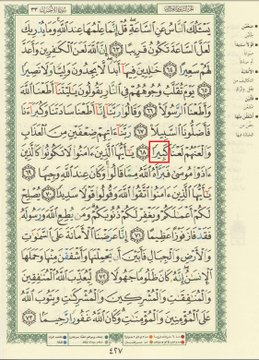 يَسْـَٔلُكَ ٱلنَّاسُ عَنِ ٱلسَّاعَةِ ۖ قُلْ إِنَّمَا عِلْمُهَا عِندَ ٱللَّهِ ۚ وَمَا يُدْرِيكَ
لَعَلَّ ٱلسَّاعَةَ تَكُونُ قَرِيبًا ٦٣ إِنَّ ٱللَّهَ لَعَنَ ٱلْكَـٰفِرِينَ وَأَعَدَّ
لَهُمْ سَعِيرًا ٦٤ خَـٰلِدِينَ فِيهَآ أَبَدًا ۖ لَّا يَجِدُونَ وَلِيًّا وَلَا نَصِيرًا
٦٥ يَوْمَ تُقَلَّبُ وُجُوهُهُمْ فِى ٱلنَّارِ يَقُولُونَ يَـٰلَيْتَنَآ أَطَعْنَا ٱللَّهَ
وَأَطَعْنَا ٱلرَّسُولَا۠ ٦٦ وَقَالُوا۟ رَبَّنَآ إِنَّآ أَطَعْنَا سَادَتَنَا وَكُبَرَآءَنَا
فَأَضَلُّونَا ٱلسَّبِيلَا۠ ٦٧ رَبَّنَآ ءَاتِهِمْ ضِعْفَيْنِ مِنَ ٱلْعَذَابِ
وَٱلْعَنْهُمْ لَعْنًا كَبِيرًا ٦٨ يَـٰٓأَيُّهَا ٱلَّذِينَ ءَامَنُوا۟ لَا تَكُونُوا۟ كَٱلَّذِينَ
ءَاذَوْا۟ مُوسَىٰ فَبَرَّأَهُ ٱللَّهُ مِمَّا قَالُوا۟ ۚ وَكَانَ عِندَ ٱللَّهِ وَجِيهًا ٦٩
يَـٰٓأَيُّهَا ٱلَّذِينَ ءَامَنُوا۟ ٱتَّقُوا۟ ٱللَّهَ وَقُولُوا۟ قَوْلًا سَدِيدًا ٧٠ يُصْلِحْ
لَكُمْ أَعْمَـٰلَكُمْ وَيَغْفِرْ لَكُمْ ذُنُوبَكُمْ ۗ وَمَن يُطِعِ ٱللَّهَ وَرَسُولَهُۥ
فَقَدْ فَازَ فَوْزًا عَظِيمًا ٧١ إِنَّا عَرَضْنَا ٱلْأَمَانَةَ عَلَى ٱلسَّمَـٰوَٰتِ
وَٱلْأَرْضِ وَٱلْجِبَالِ فَأَبَيْنَ أَن يَحْمِلْنَهَا وَأَشْفَقْنَ مِنْهَا وَحَمَلَهَا
ٱلْإِنسَـٰنُ ۖ إِنَّهُۥ كَانَ ظَلُومًا جَهُولًا ٧٢ لِّيُعَذِّبَ ٱللَّهُ ٱلْمُنَـٰفِقِينَ
وَٱلْمُنَـٰفِقَـٰتِ وَٱلْمُشْرِكِينَ وَٱلْمُشْرِكَـٰتِ وَيَتُوبَ ٱللَّهُ
عَلَى ٱلْمُؤْمِنِينَ وَٱلْمُؤْمِنَـٰتِ ۗ وَكَانَ ٱللَّهُ غَفُورًا رَّحِيمًا ٧٣
٤٢٧